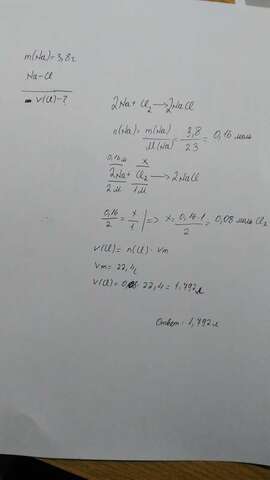 m(Na)=3,8г
Na-Cl
v(Cl)-?
2Na+Cl₂→2NaCl
n(Na)=m(Na)/M(Na)=3,8/23=0,16 моль
0,16м x
2Na+Cl₂→2NaCl
2м 1м
0,16/2=x/1|=>x=0,16·1/2=0,08 моль Cl₂
v(Cl)=n(Cl)·Vm
Vm=22,4
v(Cl)=0,08·22,4=1,792л
Ответ:1,792л